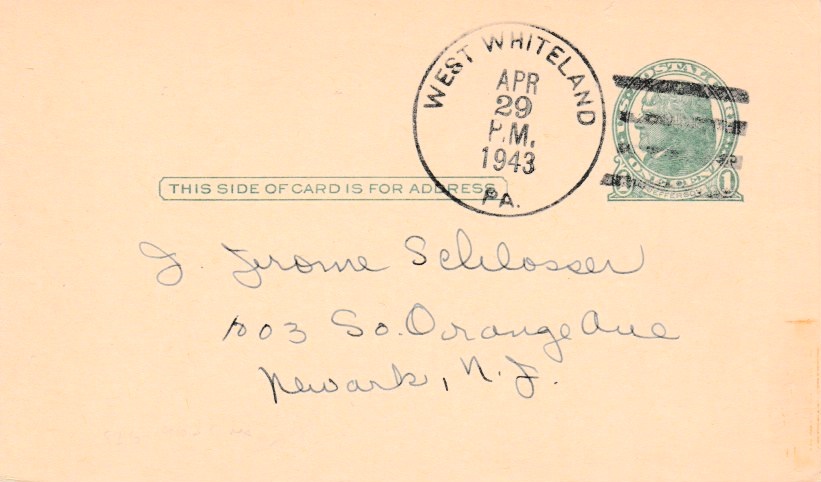 WEST WHITELAND
APR
29
P.M.
1943
PA.
U.S. POSTAL CARD
ONE CENT
1 1
THIS SIDE OF CARD IS FOR ADDRESS
J. Jerome Schlosser
1003 So. Orange Ave
Newark, N.J.